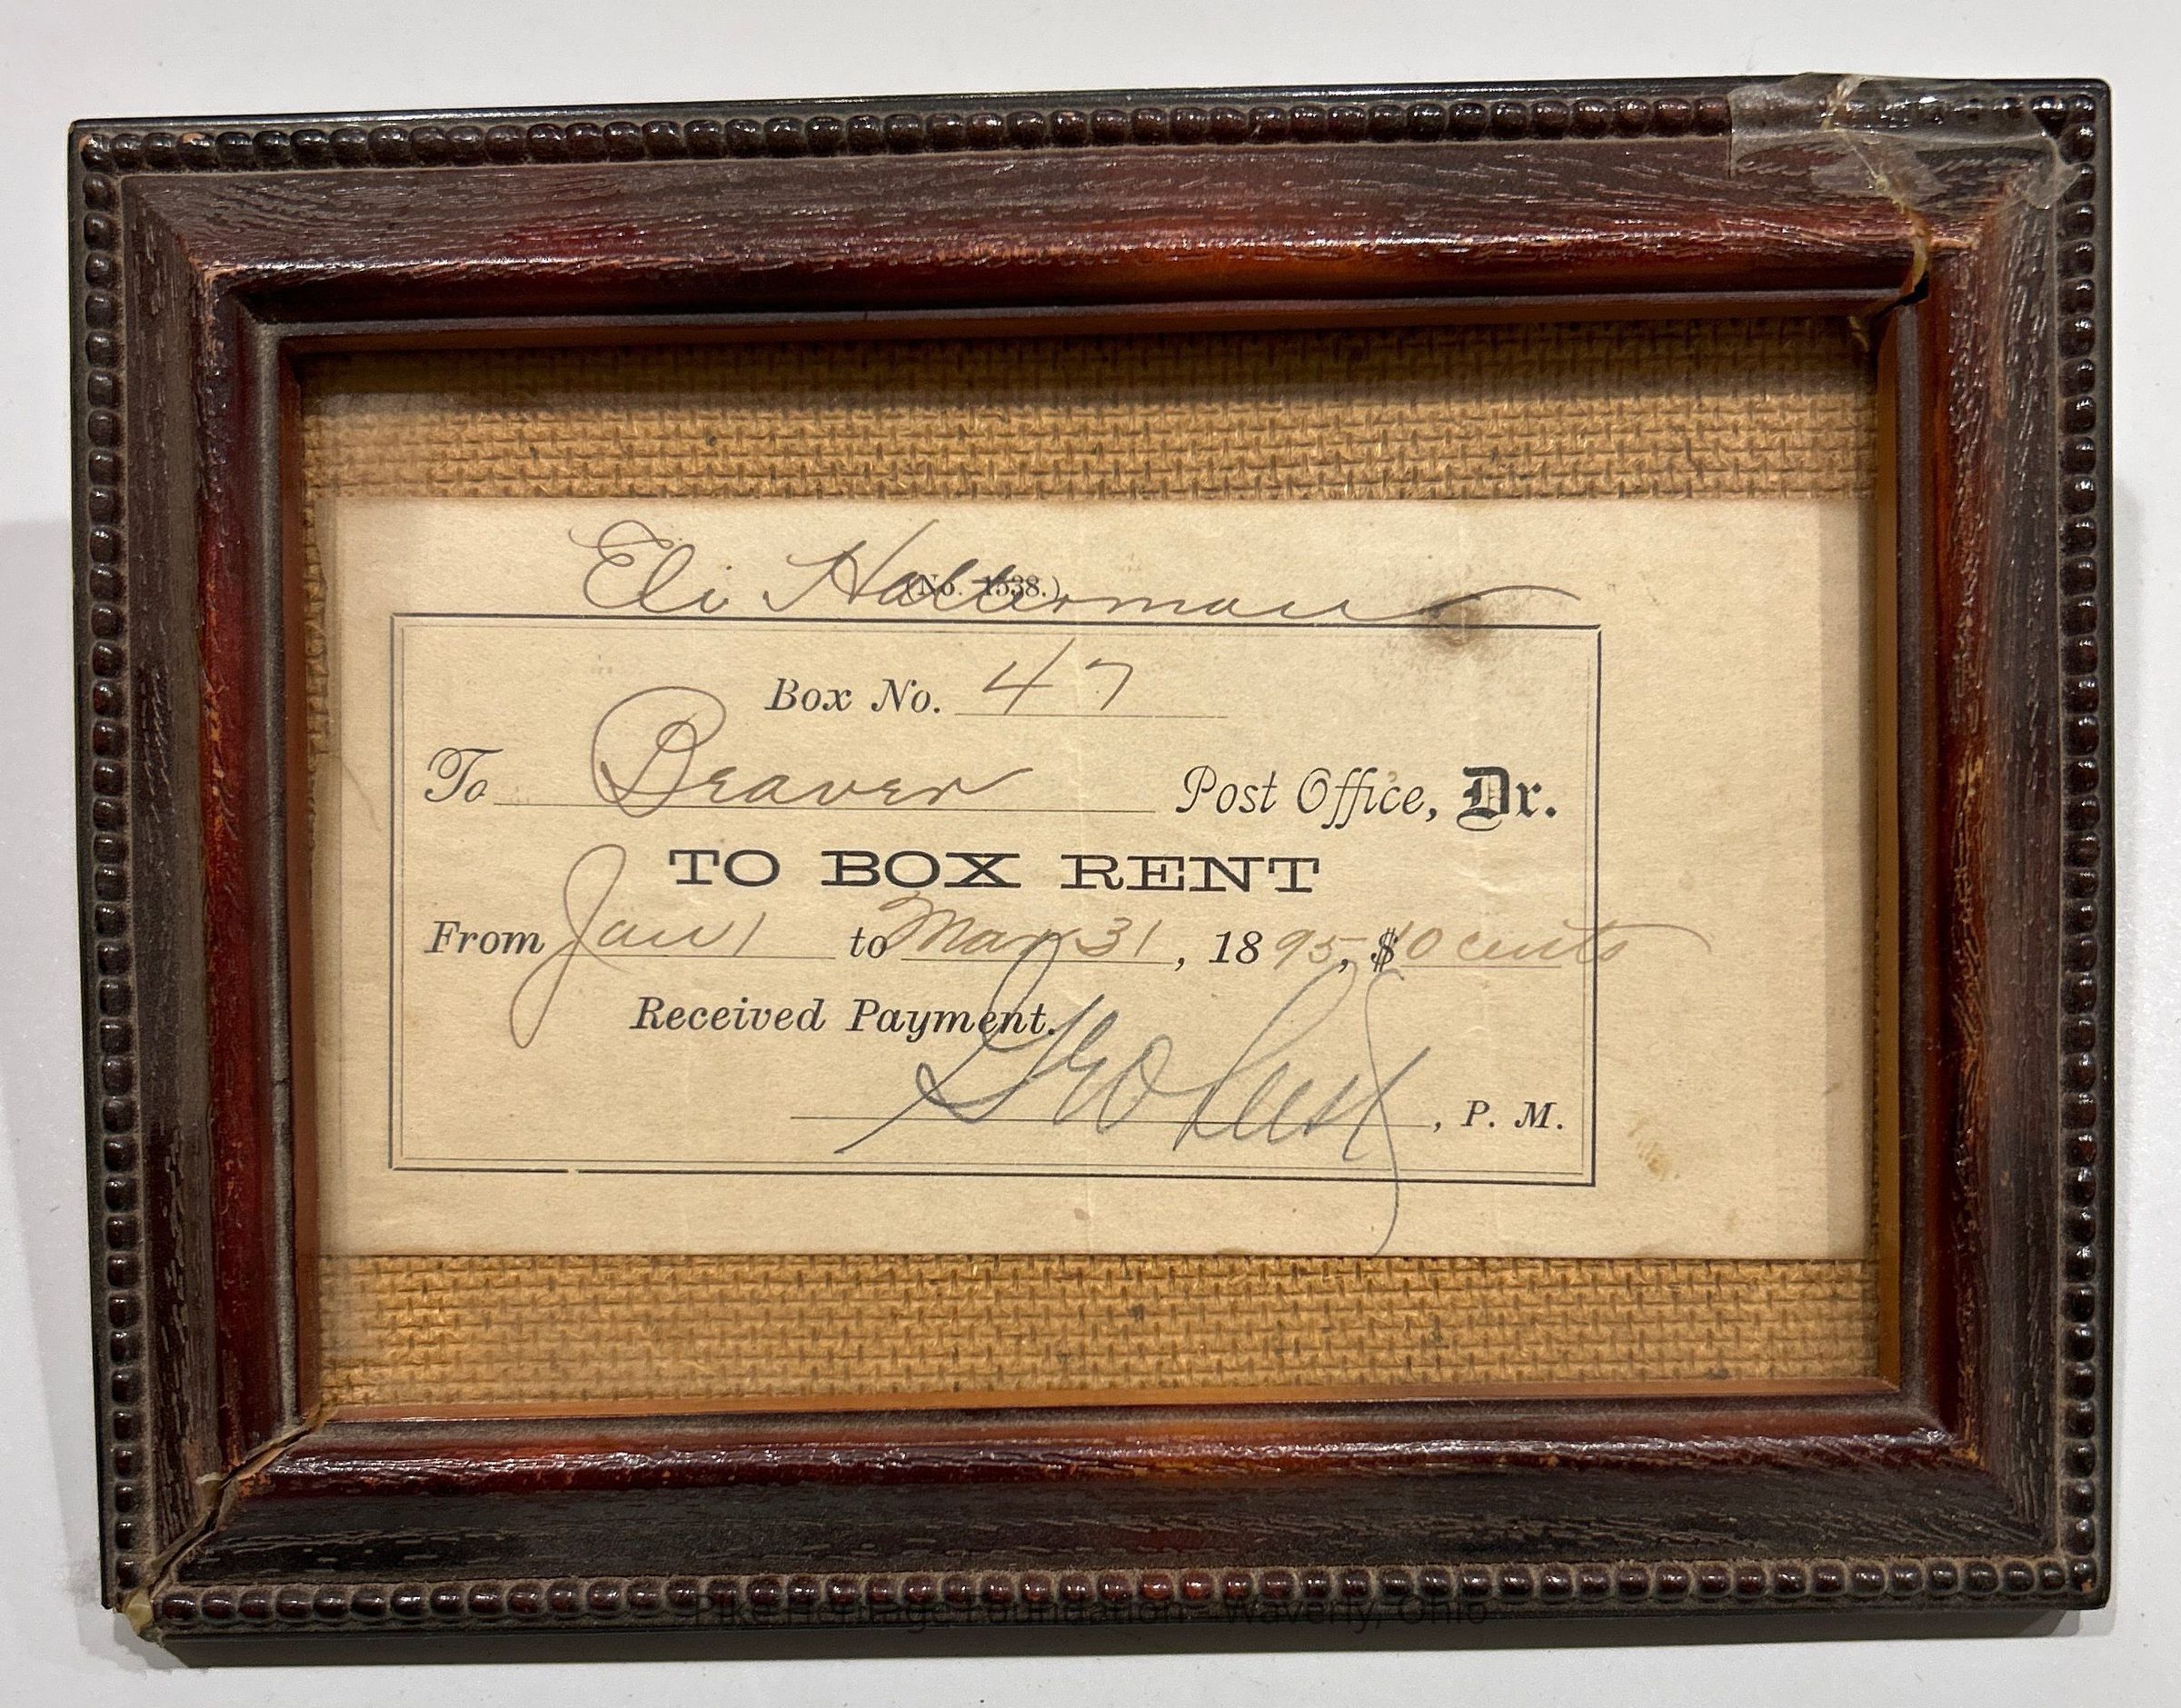 Eli Halterman
(No. 1538.)
Box No. 47
To Beaver Post Office, Dr.
TO BOX RENT
From Jan 1 to Mar 31, 1895, $10 cents
Received Payment.
Geo , P. M.
Pike Heritage Foundation - Waverly, Ohio